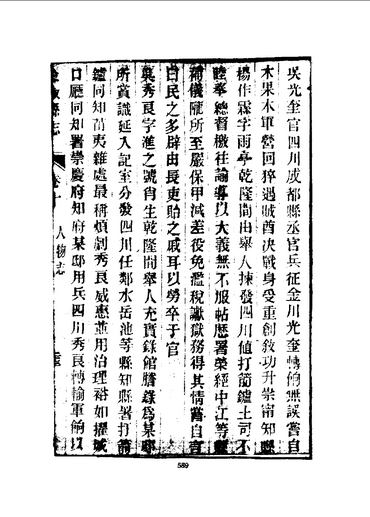 吳光奎官四川成都縣丞官兵征金川光奎轉餉無誤嘗自
木果木軍營回猝遇賊酋決戰身受重創敘功升崇甯知縣
楊作霖字雨亭乾隆間由舉人揀發四川值打箭鑪土司不
睦奉總督檄往諭導以大義無不服帖歷署榮經中江等縣
補儀隴所至嚴保甲減差役免濫稅讞獄務得其情嘗自言
曰民之多辟由長吏貽之戚耳以勞卒于官
秀良字進之號肖生乾隆間舉人充實錄館謄錄為某
所賞識延入記室分發四川任鄰水岳池等縣知縣署打箭
鑪同知苗夷雜處最稱煩劇秀良威惠並用治理裕如擢
口廳同知署崇慶府知府某用兵四川秀良轉輸軍餉以
縣志
卷十
人物志
589